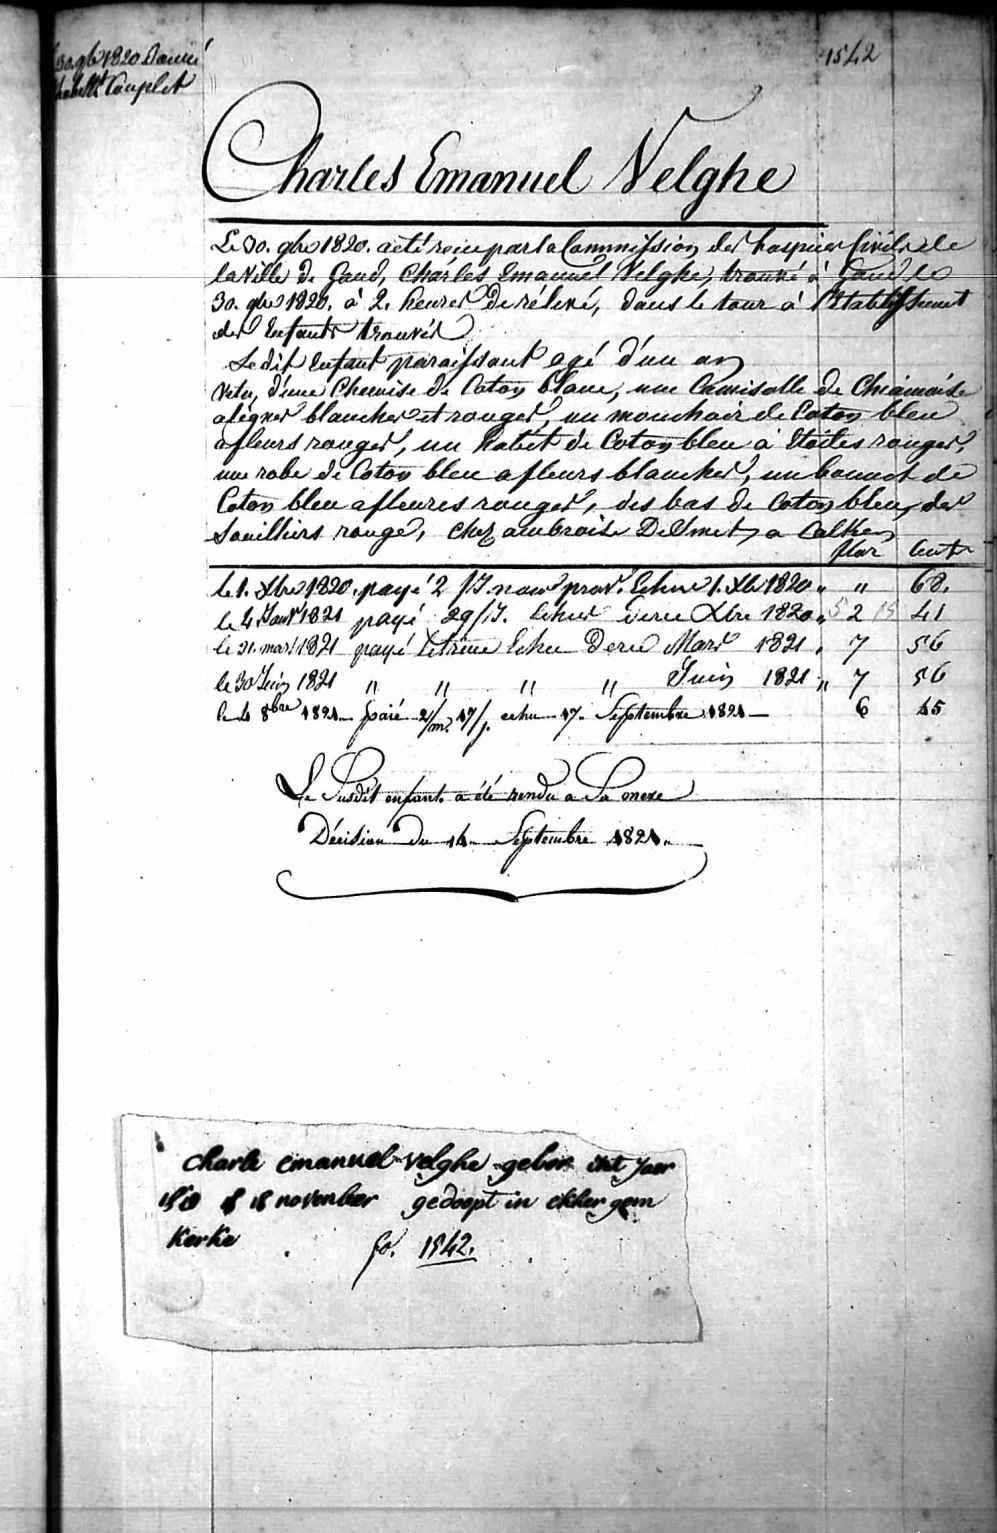 30. gb 1820 Donné
Couplet
1542
Charles Emanuel Velghe
Le 30. gbre 1820. a eté reçu par la Commission des hospices Civils de
la Ville de Gand, Charles Emanuel Velghe, trouvé à Gand le
30. gbre 1820. à 2. heures De rélevé, dans le tour à l'Etablissement
des Enfants trouvés
Le dit Enfant paraissant agé d'un an
Vetu, d'une Chemise de Coton blanc, une Camisolle de Chiamoise
a lignes blanches et rouges un mouchoir de Coton bleu
a fleurs rouges, un habit de Coton bleu à Etoiles rouges,
une robe de Coton bleu a fleurs blanches, un bonnet de
Coton bleu a fleures rouges, des bas de Coton bleu, des
Souilliers rouge, chez ambroise DeSmet, a Calken
flor Cents
le 1. Xbre 1820. payé 2 /J. nour prov. Echu 1. Xb 1820 " " 68.
le 4. Janv 1821 payé 29/J. Echus Dern Xbre 1820 " 5 2 15 41
le 31. mars 1821 payé letrime Echu Dern Mars 1821 " 7 56
le 30 Juin 1821 " " " " Juin 1821 " 7 56
le 4 8bre 1821 paié 2/m. 17/j. echu 17. Septembre 1821 6 45
Le Susdit enfant a été rendu a Sa mere
Décision du 14 Septembre 1821.
charle emanuel velghe gebor int Jaer
18 november gedoopt in ekker gem
Kerke fo. 1542.